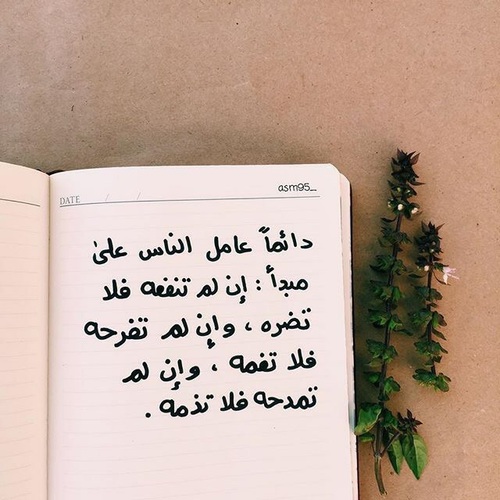 DATE / /
asm95_
دائماً عامل الناس على
مبدأ : إن لم تنفعه فلا
تضره ، وإن لم تفرحه
فلا تغمه ، وإن لم
تمدحه فلا تذمه .